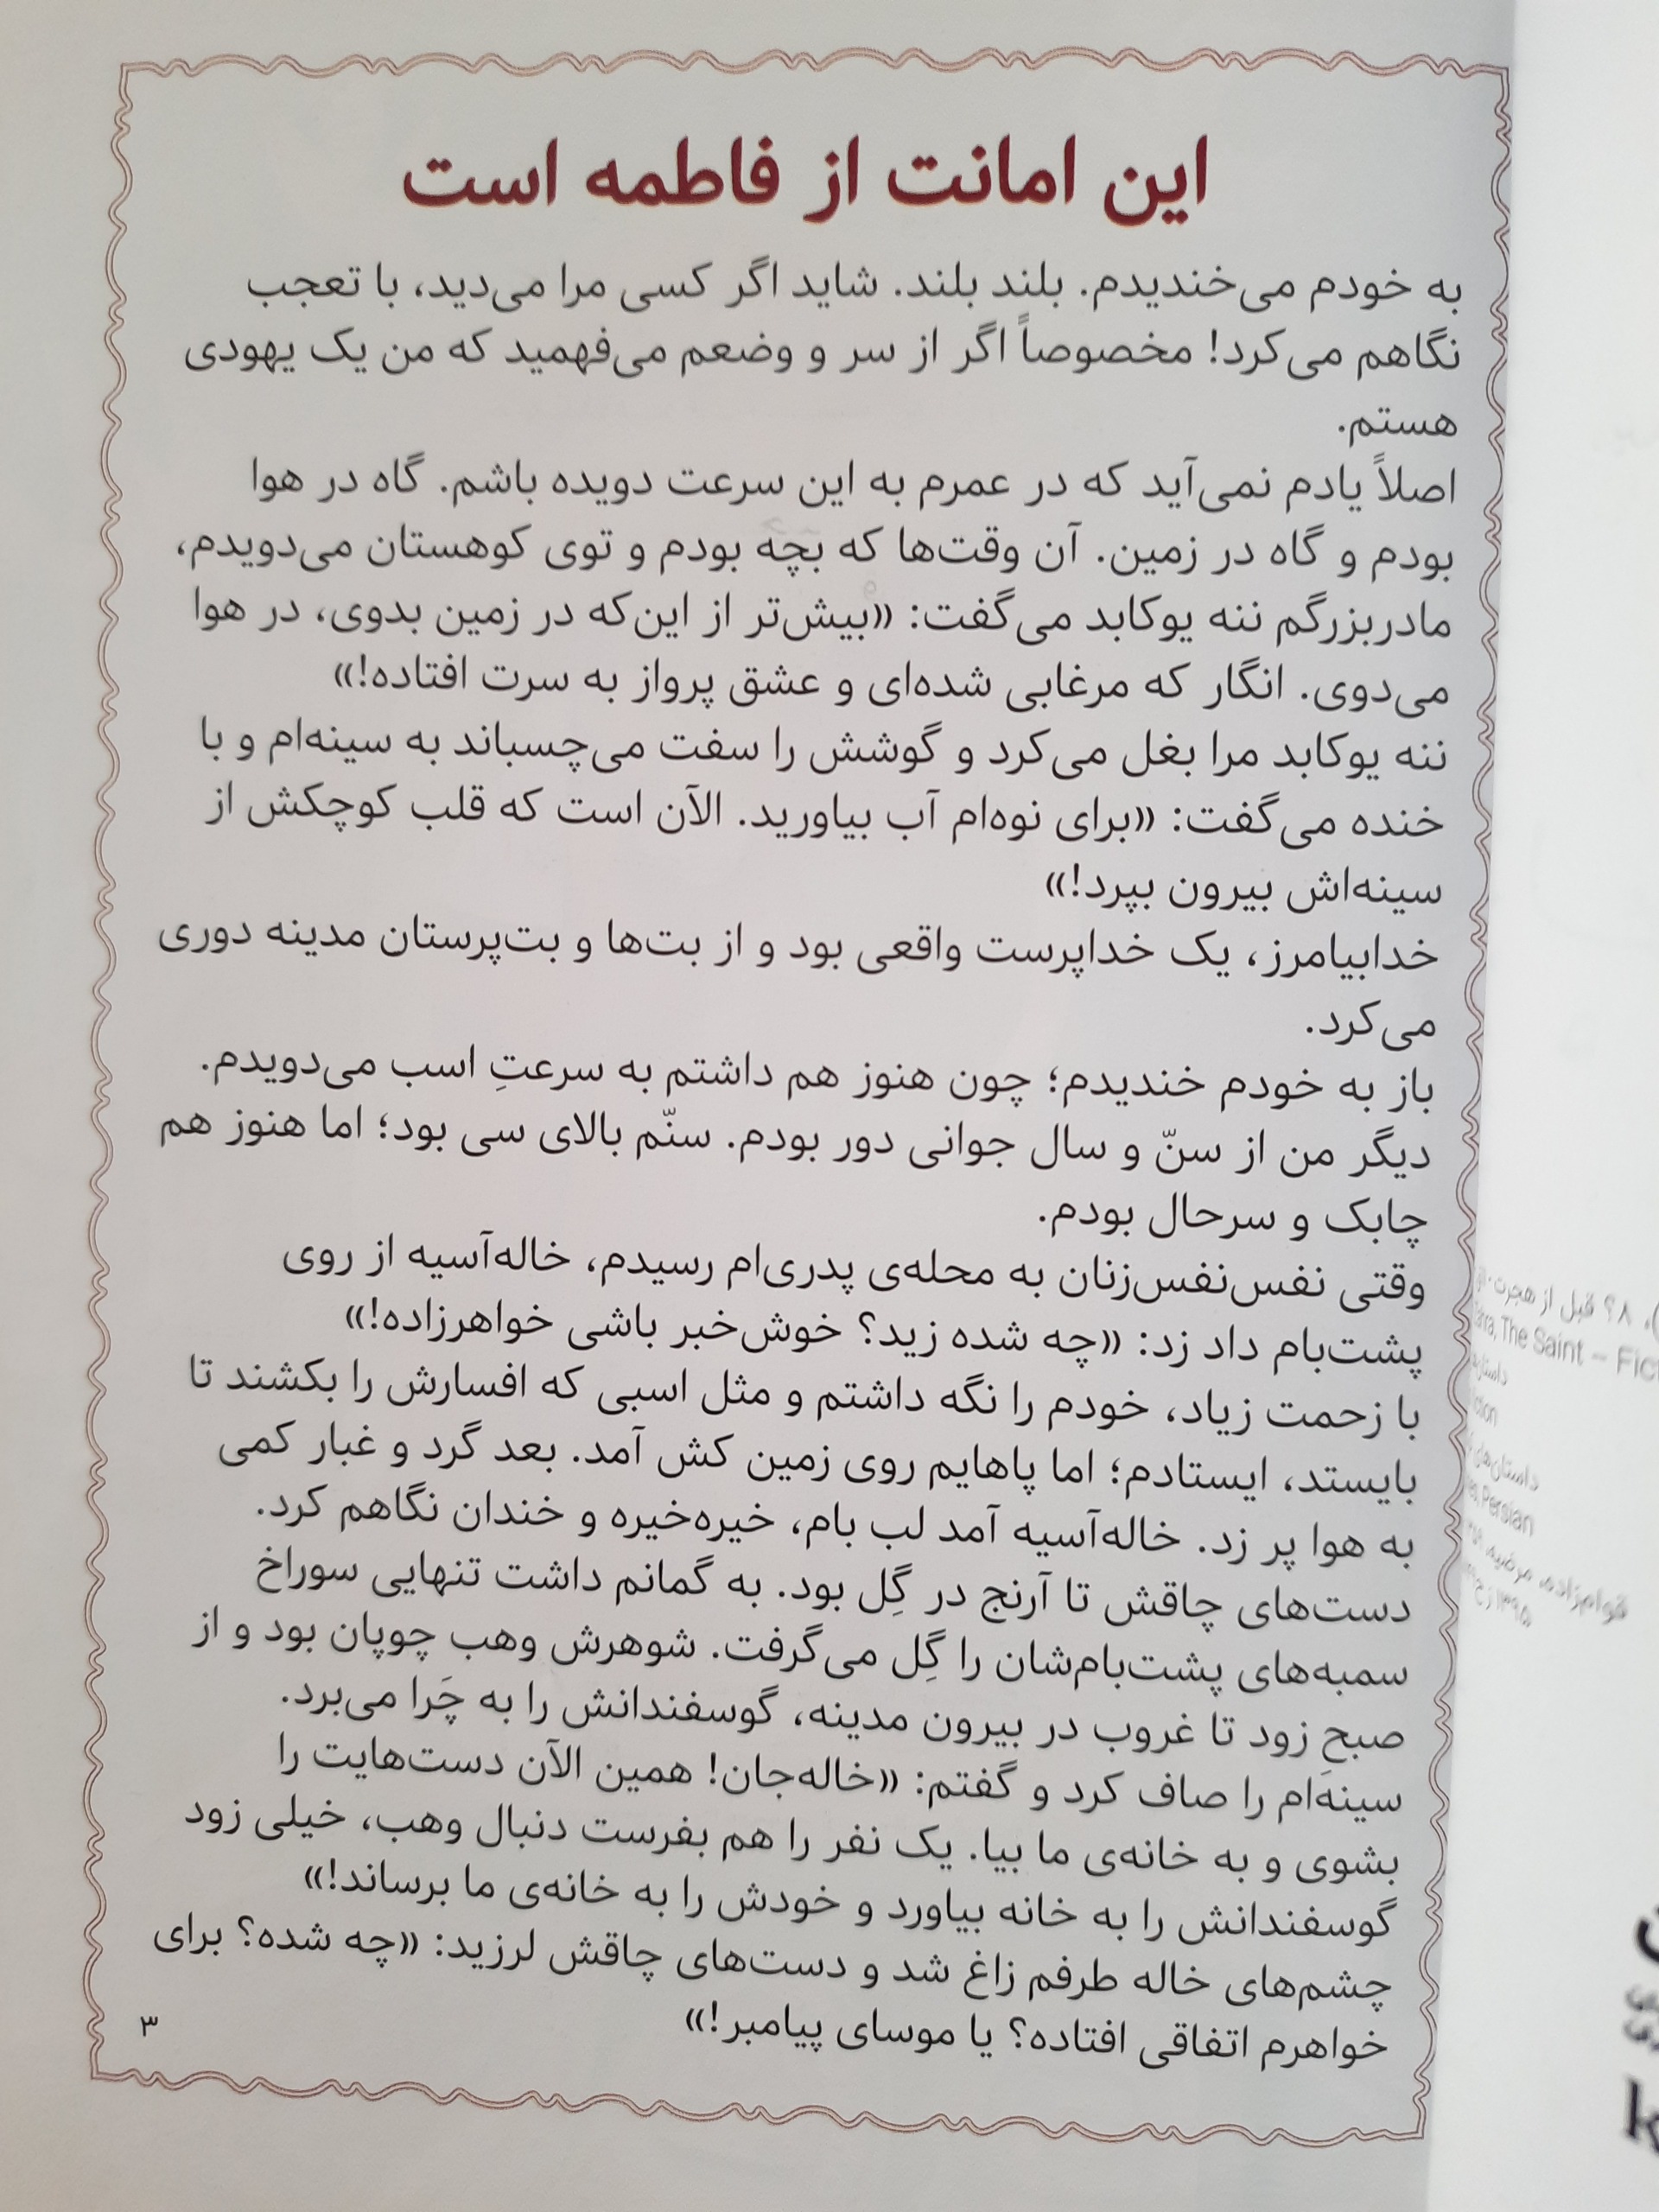 این امانت از فاطمه است
به خودم می‌خندیدم. بلند بلند. شاید اگر کسی مرا می‌دید، با تعجب
نگاهم می‌کرد! مخصوصاً اگر از سر و وضعم می‌فهمید که من یک یهودی
هستم.
اصلاً یادم نمی‌آید که در عمرم به این سرعت دویده باشم. گاه در هوا
بودم و گاه در زمین. آن وقت‌ها که بچه بودم و توی کوهستان می‌دویدم،
مادربزرگم ننه یوکابد می‌گفت: «بیش‌تر از این‌که در زمین بدوی، در هوا
می‌دوی. انگار که مرغابی شده‌ای و عشق پرواز به سرت افتاده!»
ننه یوکابد مرا بغل می‌کرد و گوشش را سفت می‌چسباند به سینه‌ام و با
خنده می‌گفت: «برای نوه‌ام آب بیاورید. الآن است که قلب کوچکش از
سینه‌اش بیرون بپرد!»
خدابیامرز، یک خداپرست واقعی بود و از بت‌ها و بت‌پرستان مدینه دوری
می‌کرد.
باز به خودم خندیدم؛ چون هنوز هم داشتم به سرعتِ اسب می‌دویدم.
دیگر من از سنّ و سال جوانی دور بودم. سنّم بالای سی بود؛ اما هنوز هم
چابک و سرحال بودم.
وقتی نفس‌نفس‌زنان به محله‌ی پدری‌ام رسیدم، خاله‌آسیه از روی
پشت‌بام داد زد: «چه شده زید؟ خوش‌خبر باشی خواهرزاده!»
با زحمت زیاد، خودم را نگه داشتم و مثل اسبی که افسارش را بکشند تا
بایستد، ایستادم؛ اما پاهایم روی زمین کش آمد. بعد گرد و غبار کمی
به هوا پر زد. خاله‌آسیه آمد لب بام، خیره‌خیره و خندان نگاهم کرد.
دست‌های چاقش تا آرنج در گِل بود. به گمانم داشت تنهایی سوراخ
سمبه‌های پشت‌بام‌شان را گِل می‌گرفت. شوهرش وهب چوپان بود و از
صبحِ زود تا غروب در بیرون مدینه، گوسفندانش را به چَرا می‌برد.
سینه‌ام را صاف کرد و گفتم: «خاله‌جان! همین الآن دست‌هایت را
بشوی و به خانه‌ی ما بیا. یک نفر را هم بفرست دنبال وهب، خیلی زود
گوسفندانش را به خانه بیاورد و خودش را به خانه‌ی ما برساند!»
چشم‌های خاله طرفم زاغ شد و دست‌های چاقش لرزید: «چه شده؟ برای
خواهرم اتفاقی افتاده؟ یا موسای پیامبر!»
۳
The Saint – Fic
Persian